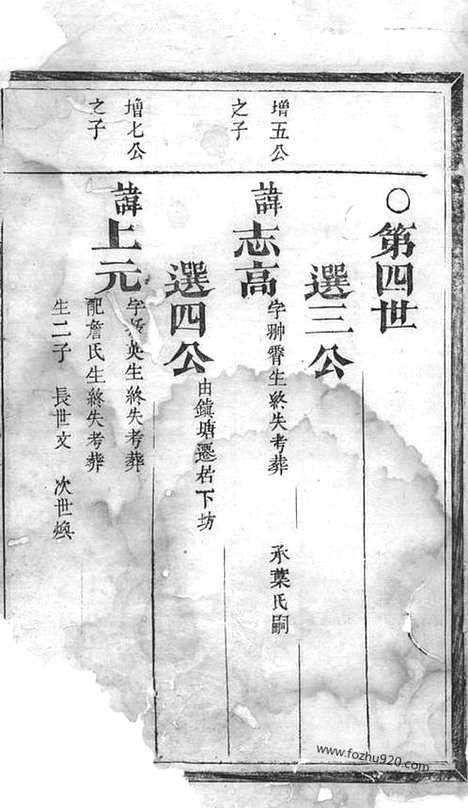 ○第四世
選三公
增五公
之子
諱志高
字翀霄生終失考葬
承葉氏嗣
選四公
由鎮塘遷居下坊
增七公
之子
諱上元
字 英生終失考葬
配詹氏生終失考葬
生二子 長世文 次世煥
www.fozhu920.com